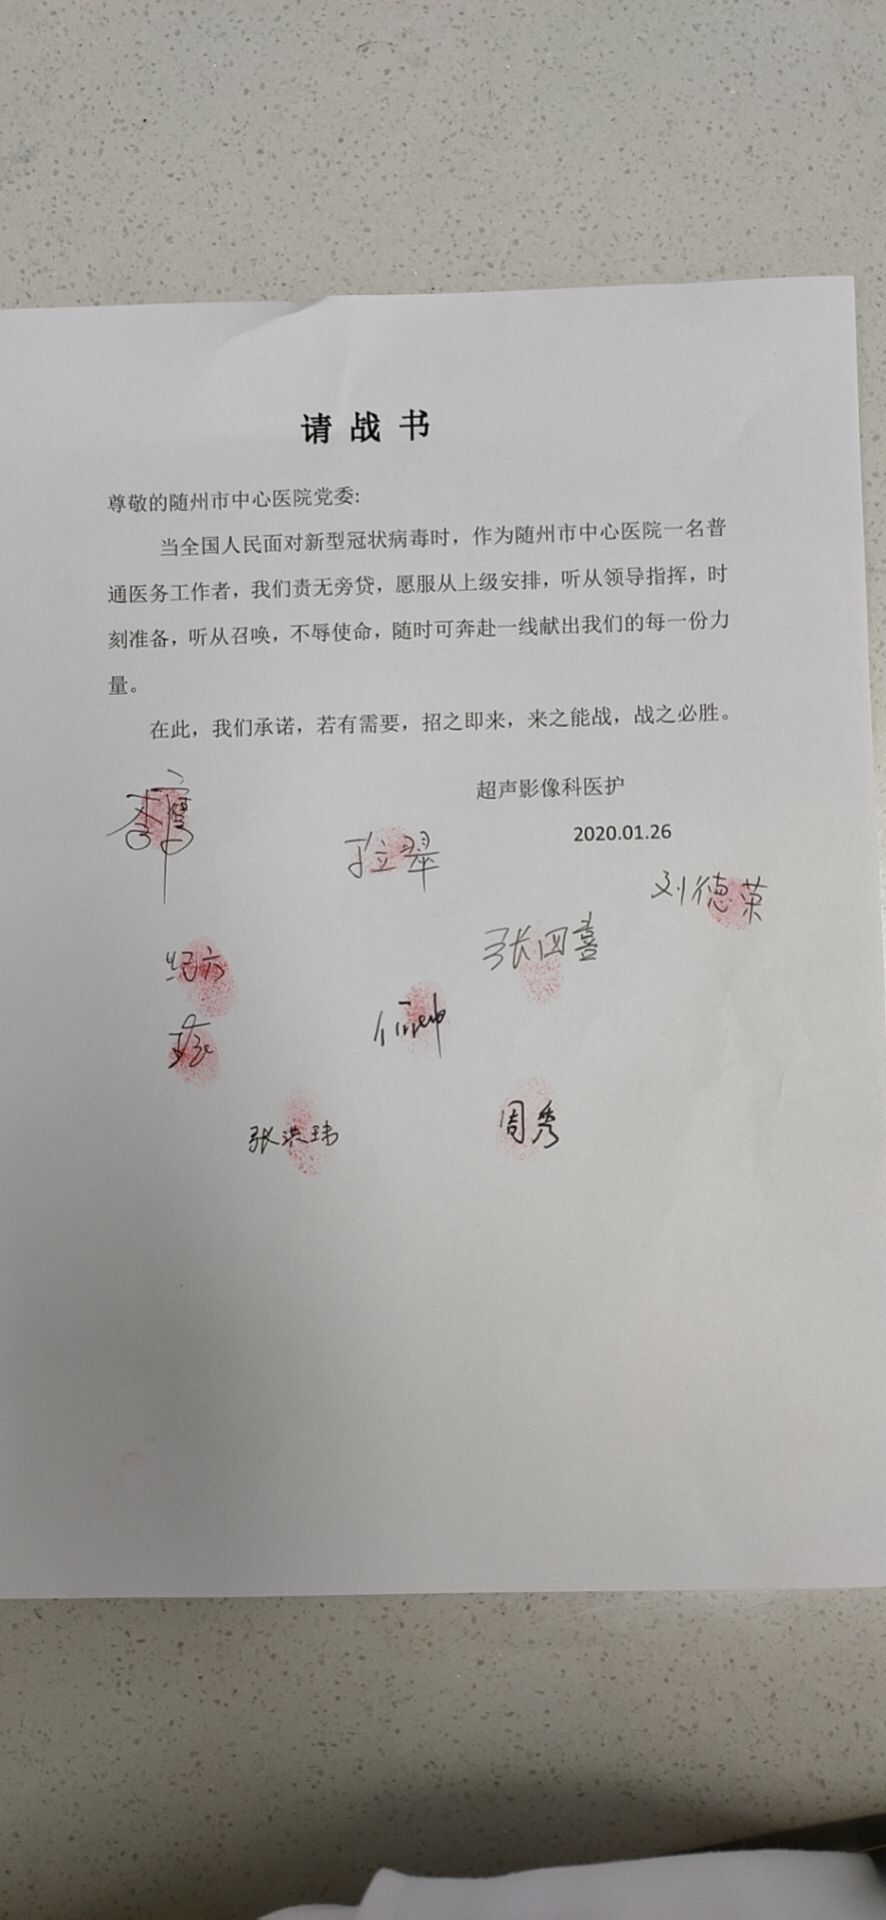 请战书
尊敬的随州市中心医院党委:
当全国人民面对新型冠状病毒时，作为随州市中心医院一名普
通医务工作者，我们责无旁贷，愿服从上级安排，听从领导指挥，时
刻准备，听从召唤，不辱使命，随时可奔赴一线献出我们的每一份力
量。
在此，我们承诺，若有需要，招之即来，来之能战，战之必胜。
超声影像科医护
2020.01.26
刘德荣
张四喜
张洪玮
周秀